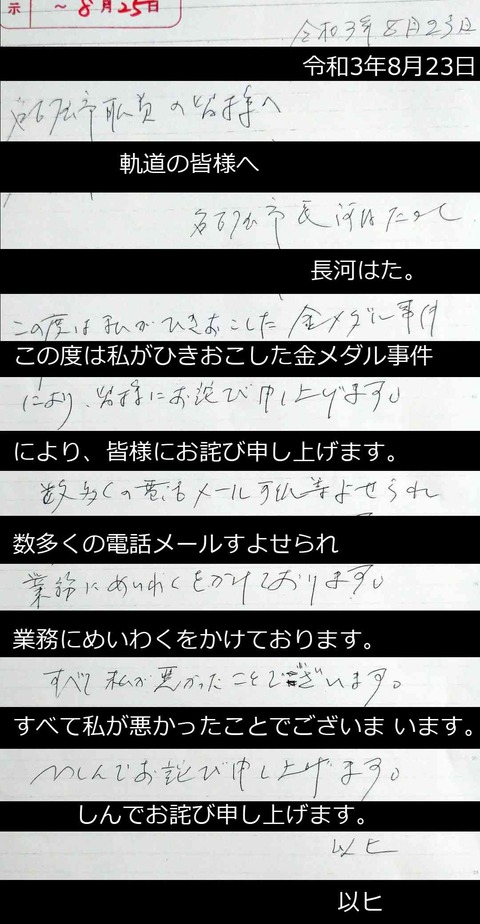 示 ～8月25日
令和3年8月23日
令和3年8月23日
名古屋市職員の皆様へ
軌道の皆様へ
名古屋市長河村たかし
長河はた。
この度は私がひきおこした金メダル事件
この度は私がひきおこした金メダル事件
により、皆様にお詫び申し上げます。
により、皆様にお詫び申し上げます。
数多くの電話メール手紙等よせられ
数多くの電話メールすよせられ
業務にめいわくをかけております。
業務にめいわくをかけております。
すべて私が悪かったことでございます。
すべて私が悪かったことでございま います。
つつしんでお詫び申し上げます。
しんでお詫び申し上げます。
以上
以ヒ